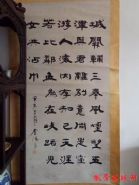 城闕輔三秦風煙望五
津與君離別意同是宦
遊人海內存知己天涯
若比鄰無為在歧路兒
女共沾巾